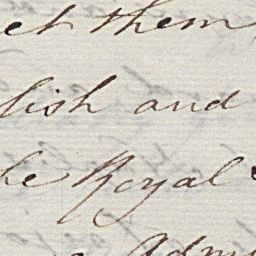 et them,
lish and
he Royal
Adm